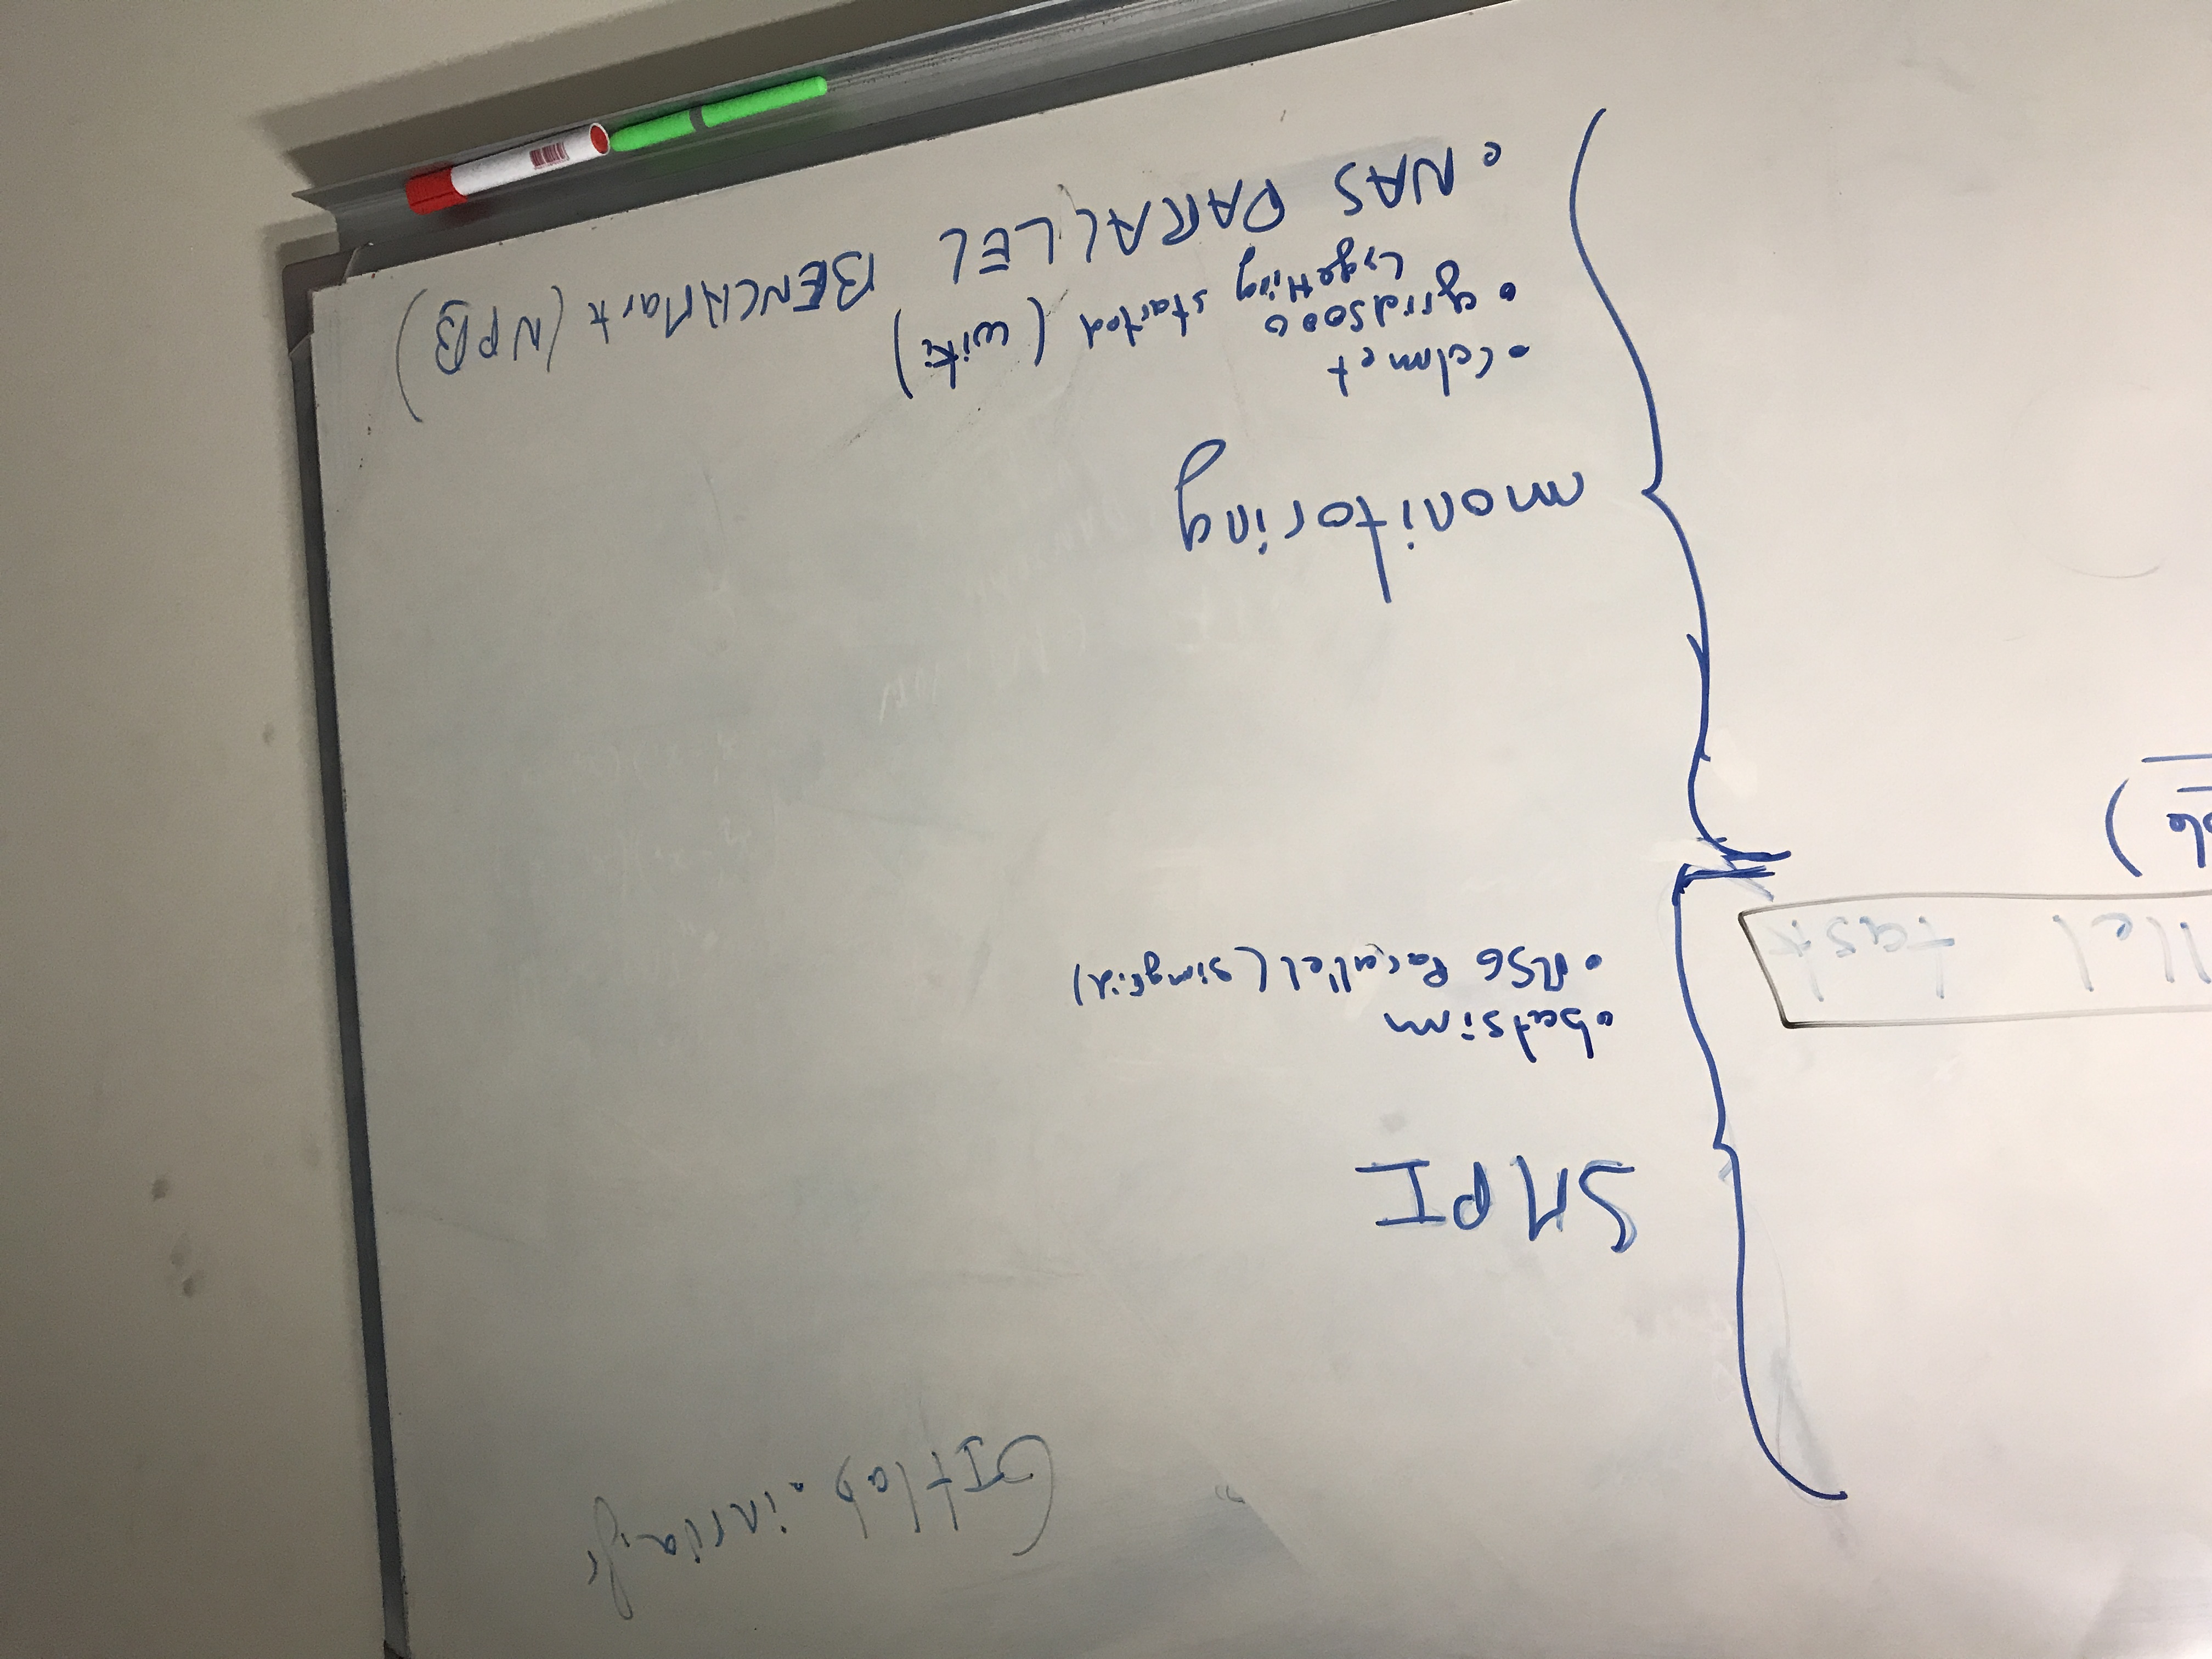 GItlab.inria.fr
SMPI
•batsim
• MSG Parallel (simgrid)
llel task
ble )
monitoring
• colmet
• grid5000
↳getting started (wiki)
• NAS PARALLEL BENCHMark (NPB)